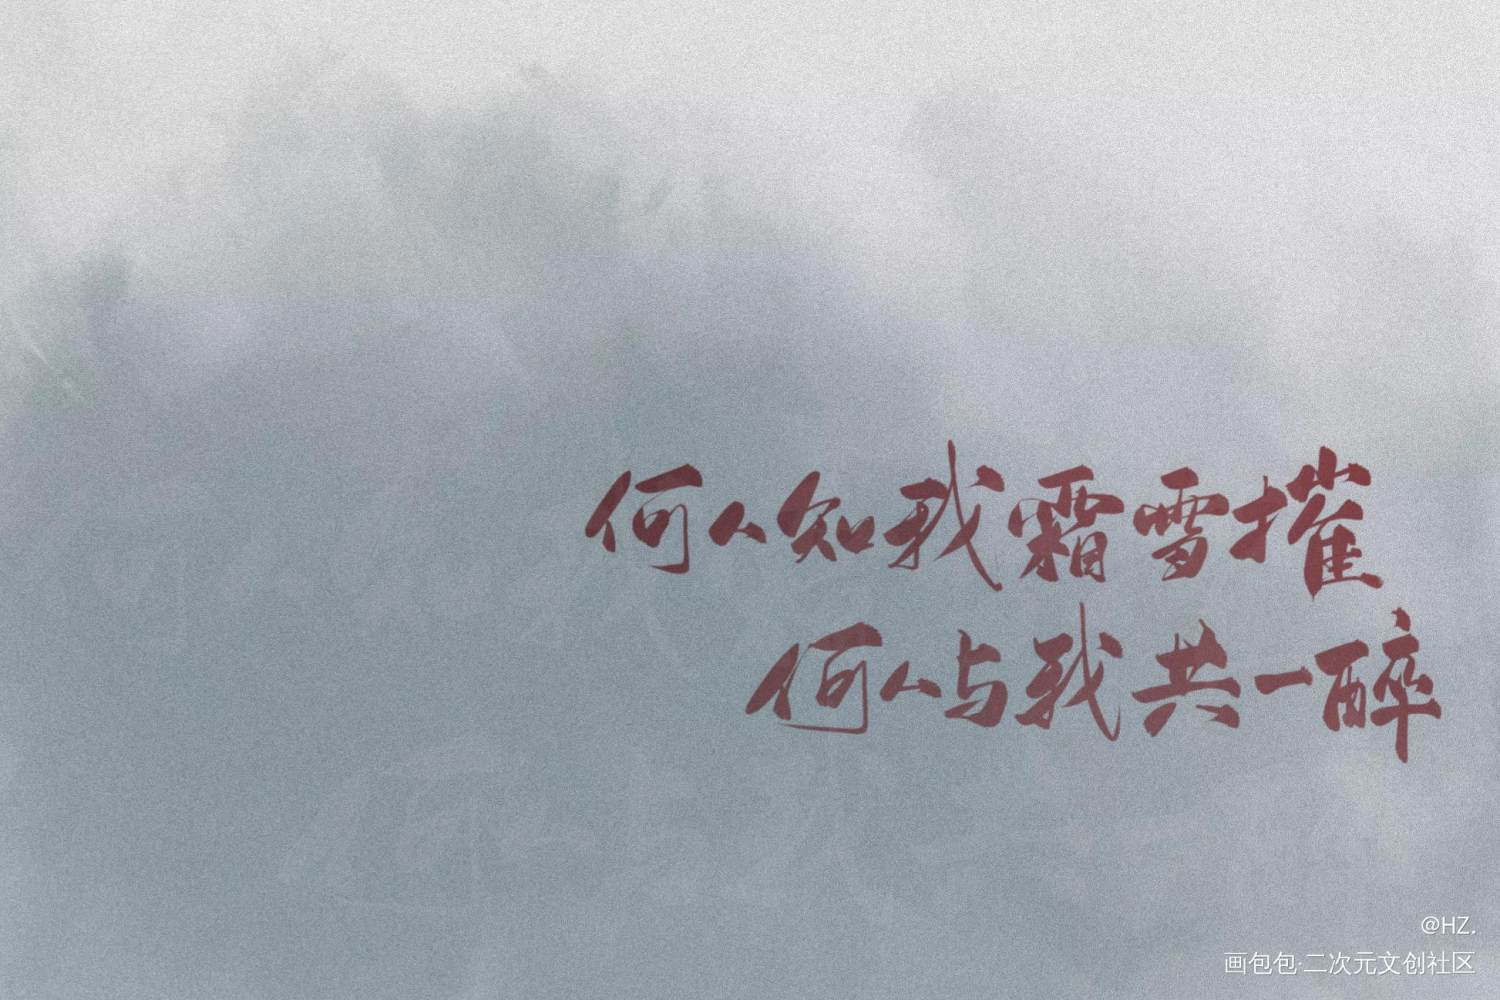 何人知我霜雪摧
何人与我共一醉
@HZ.
画包包·二次元文创社区